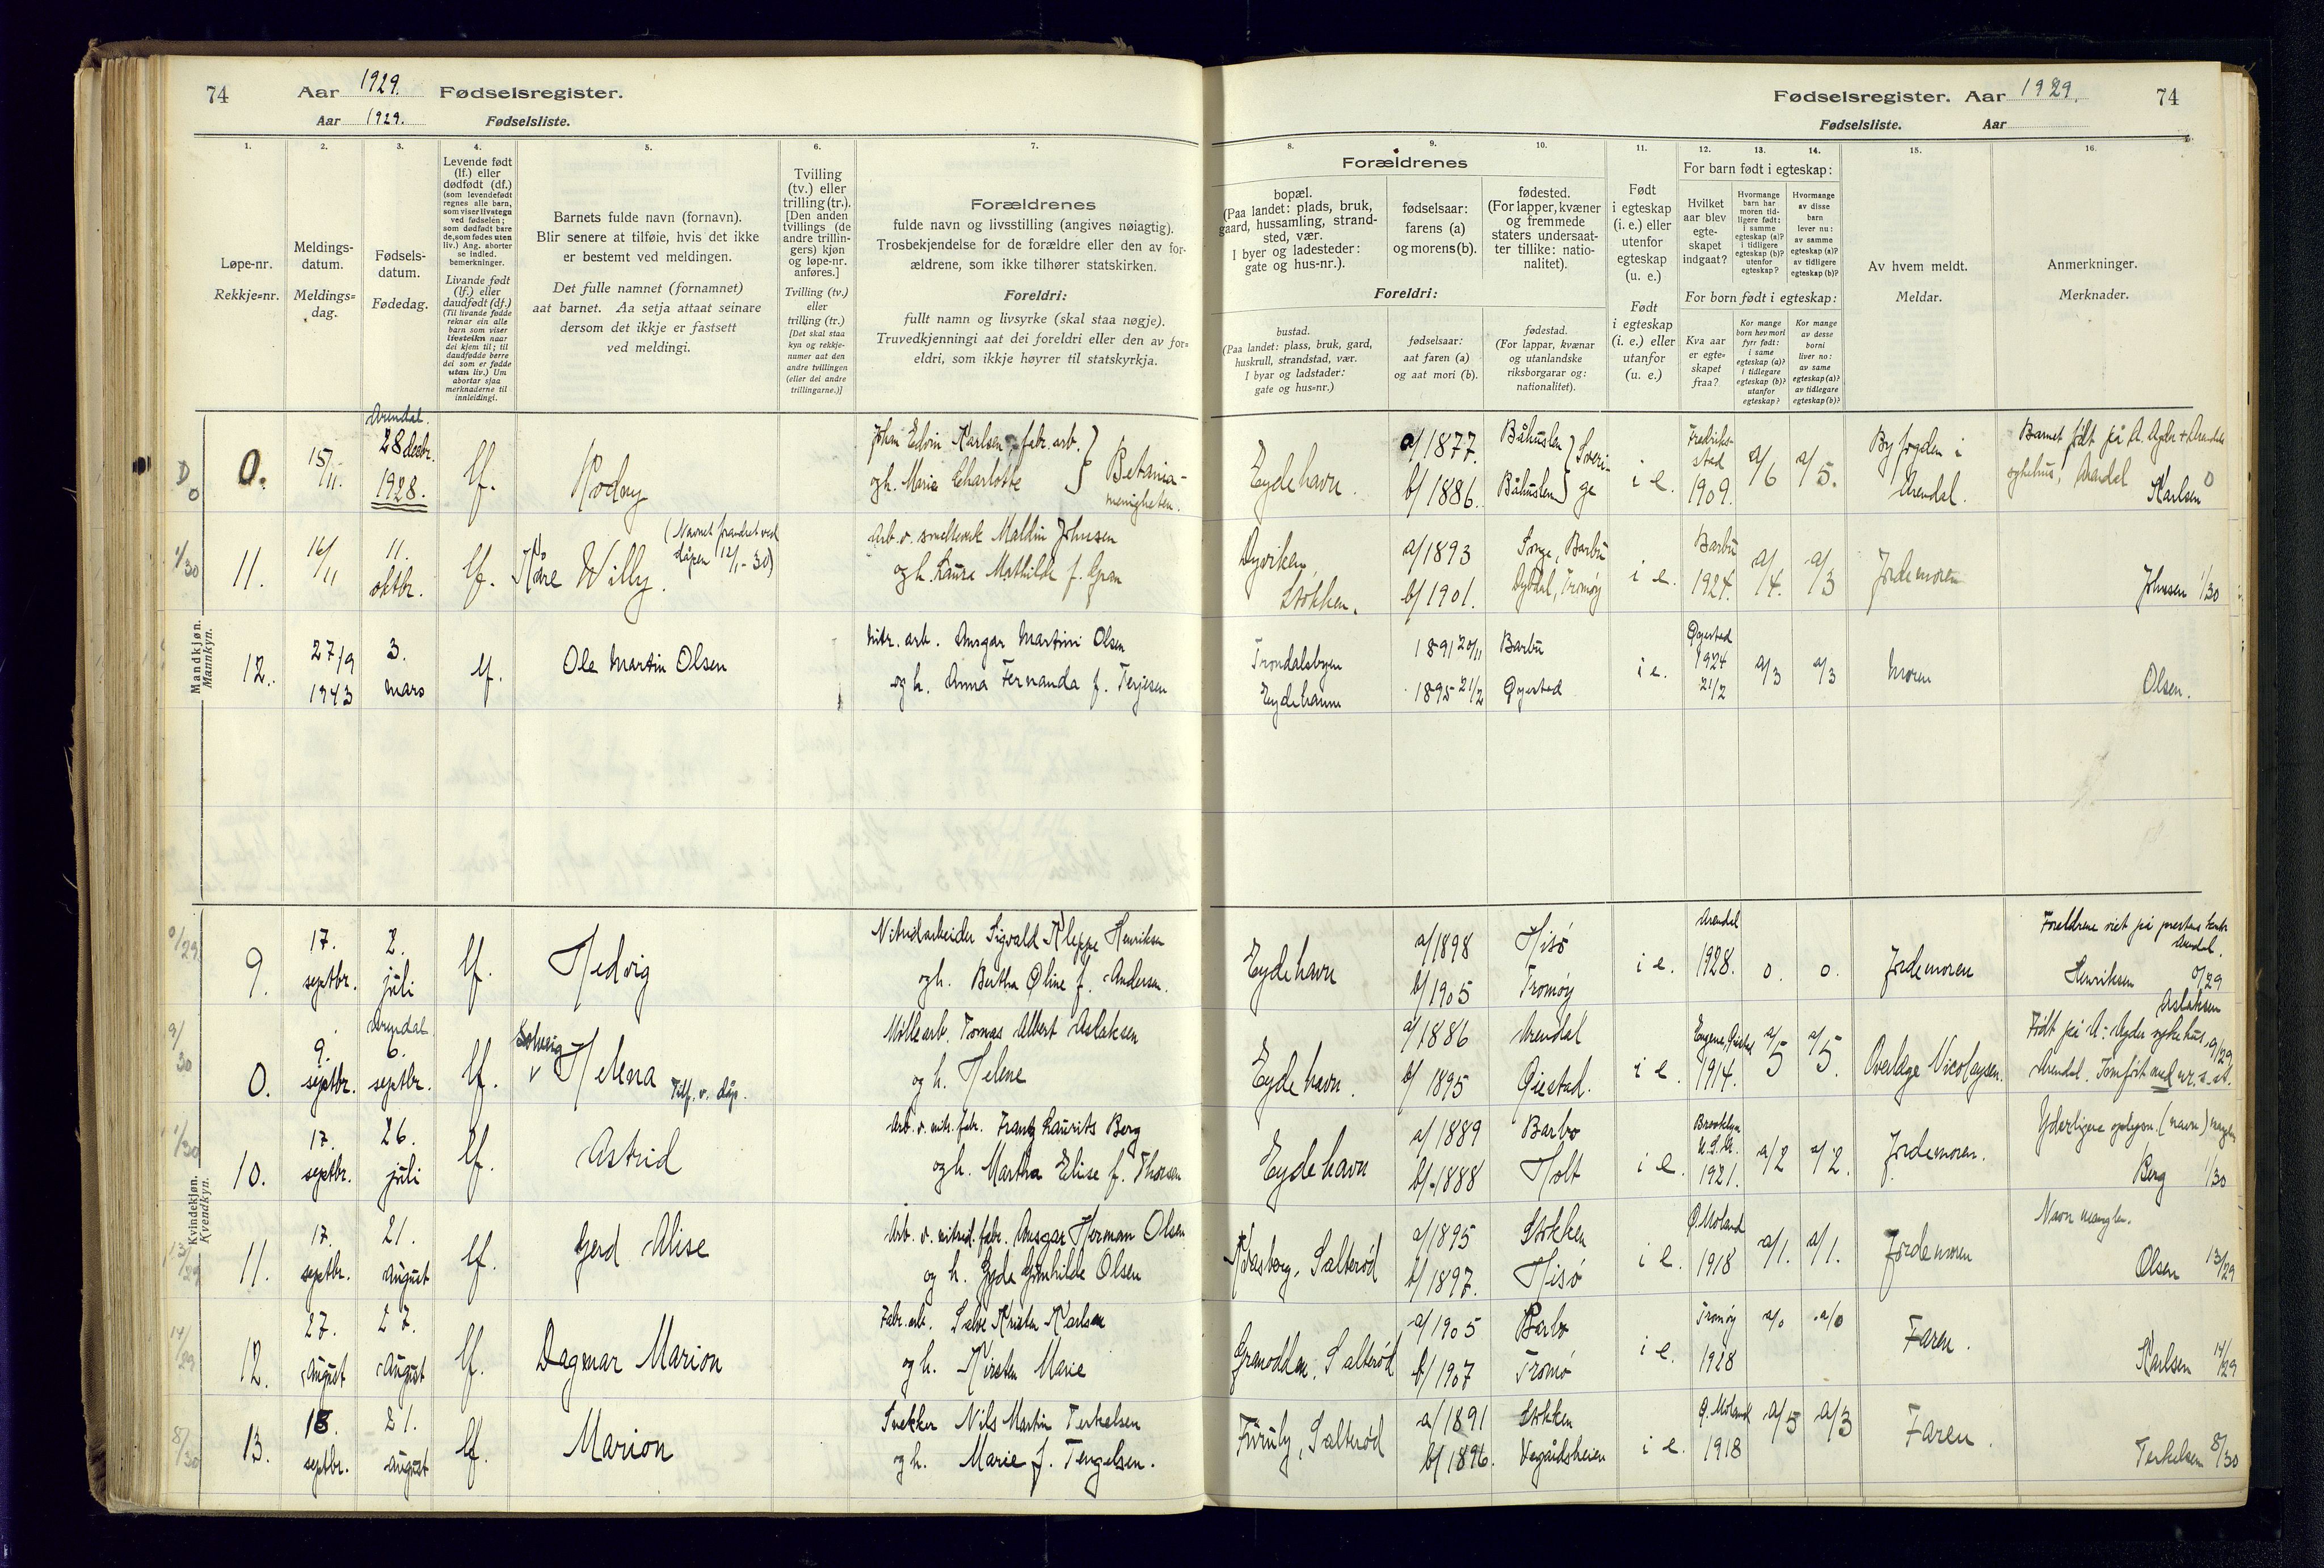 74
Aar 1929. Fødselsregister.
Aar 1929. Fødselsliste.
1. 2. 3. 4. 5. 6. 7.
Løpe-nr.
Rekkje-nr.
Meldings-
datum.
Meldings-
dag.
Fødsels-
datum.
Fødedag.
Levende født
(lf.) eller
dødfødt (df.)
(som levendefødt
regnes alle barn,
som viser livstegn
ved fødselen;
som dødfødt bare
de, som fødes uten
liv.) Ang. aborter
se indled.
bemerkninger.
Livande født
(lf.) eller
daudfødt (df.)
(Til livande fødde
reknar ein alle
barn som viser
livsteikn naar
dei kjem til; til
daudfødde berre
dei som er fødde
utan liv.) Um
abortar sjaa
merknaderne til
innleidingi.
Barnets fulde navn (fornavn).
Blir senere at tilføie, hvis det ikke
er bestemt ved meldingen.
Det fulle namnet (fornamnet)
aat barnet. Aa setja attaat seinare
dersom det ikkje er fastsett
ved meldingi.
Tvilling
(tv.) eller
trilling (tr.).
[Den anden
tvillings (de
andre trillin-
gers) kjøn
og løpe-nr.
anføres.]
Tvilling (tv.)
eller
trilling (tr.)
[Det skal staa
kyn og rekkje-
numer aat den
andre tvillingen
(eller dei andre
trillingarne.)]
Forældrenes
fulde navn og livsstilling (angives nøiagtig).
Trosbekjendelse for de forældre eller den av for-
ældrene, som ikke tilhører statskirken.
Foreldri:
fullt namn og livsyrke (skal staa nøgje).
Truvedkjenningi aat dei foreldri eller den av for-
eldri, som ikkje høyrer til statskyrkja.
Mandkjøn.
Mannkyn.
0. 15/11. Arendal. 28 decbr. 1928. lf. Rodny
Johan Edvin Karlsen, fabr. arb.
og h. Maria Charlotte } Betania-
menigheten.
1/30 11. 16/11 11. oktbr. lf. Kåre Willy. (Navnet forandret ved
dåpen 12/1-30)
Arb. v. smelteverk Maldin Johnsen
og h. Laura Mathilde f. Gran
12. 27/9 1943 3. mars lf. Ole Martin Olsen
nitr. arb. Ansgar Martini Olsen
og h. Anna Fernanda f. Terjesen
Kvindekjøn.
Kvendkyn.
0/29 9. 17. septbr. 2. juli lf. Hedvig
Nitridarbeider Sigvald Kleppe Henriksen
og h. Bertha Oline f. Andersen.
9/30 0. 9. septbr. Arendal 6. septbr. lf. Solveig Helena Tilf. v. dåp.
Møllearb. Tomas Albert Aslaksen
og h. Helene
1/30 10. 17. septbr. 26. juli lf. Astrid
Arb. v. nitr. fabr. Frantz Laurits Berg
og h. Martha Elise f. Thorsen
13/29 11. 17. septbr. 21. august lf. Gerd Alise
Arb. v. nitrid. fabr. Ansgar Herman Olsen
og h. Gyda Gunhilde Olsen
14/29 12. 27. August 27. August lf. Dagmar Marion
Fabr. arb. Salve Kristen Karlsen
og h. Kirsten Marie
8/30 13. 18. septbr. 21. august lf. Marion
Snekker Nils Martin Terkelsen
og h. Marie f. Tengelsen.
Fødselsregister. Aar 1929. 74
Fødselsliste. Aar
8. 9. 10. 11. 12. 13. 14. 15. 16.
Forældrenes
bopæl.
(Paa landet: plads, bruk,
gaard, hussamling, strand-
sted, vær.
I byer og ladesteder:
gate og hus-nr.).
fødselsaar:
farens (a)
og morens (b).
fødested.
(For lapper, kvæner
og fremmede
staters undersaat-
ter tillike: natio-
nalitet).
Foreldri:
bustad.
(Paa landet: plass, bruk, gard,
huskrull, strandstad, vær.
I byar og ladstader:
gate og hus-nr.)
fødselsaar:
aat faren (a)
og aat mori (b).
fødestad.
(For lappar, kvænar
og utanlandske
riksborgarar og:
nationalitet).
Født
i egteskap
(i. e.) eller
utenfor
egteskap
(u. e.)
Født
i egteskap
(i. e.) eller
utanfor
(u. e.)
For barn født i egteskap:
Hvilket
aar blev
egte-
skapet
indgaat?
Hvormange
barn har
moren tid-
ligere født:
i samme
egteskap (a)?
i tidligere
egteskap (b)?
utenfor
egteskap?
Hvormange
av disse
barn
lever nu:
av samme
egteskap (a)?
av tidligere
egteskap (b)?
For born født i egteskap:
Kva aar
er egte-
skapet
fraa?
Kor mange
born hev mori
fyrr født:
i same
egteskap (a)?
i tidlegare
egteskap (b)?
utanfor
egteskap?
Kor mange
av desse
borni
liver no:
av same
egteskap (a)?
av tidlegare
egteskap (b)?
Av hvem meldt.
Meldar.
Anmerkninger.
Merknader.
Eydehavn. a/1877. b/1886. Båhuslen Båhuslen } Sveri-ge i e. Fredrikstad 1909. a/6 a/5. Byfogden i Arendal.
Barnet født på A. Agder Arendal sykehus, Arendal Karlsen 0
Dyviken, Stokken. a/1893 b/1901. Songe, Barbu Dybdal, Tromøy i e. Barbu 1924. a/4. a/3 Jordmoren Johnsen 1/30
Trondalsbyen Eydehavn 1891 20/11 1895 21/2 Barbu Øyestad i e. Øyestad 1924 21/2 a/3 a/3 Moren Olsen.
Eydehavn a/1898 b/1905 Hisø Tromøy i e. Arendal 1928. 0. 0. Jordemoren
Foreldrene viet på prestens kontor Arendal. Henriksen 0/29
Eydehavn. a/1886 b/1895 Arendal Øiestad. i e. 1914. a/5 a/5. Overlæge Nicolaysen.
Aslaksen 9/29 Født på A.-Agder sykehus, Arendal.
Eydehavn a/1889 b/1888 Barbo Holt i e. Brooklyn U.S.A. 1921. a/2 a/2. Jordemoren.
Yderligere oplysn. (navn) mangler Berg 1/30
Åsborg, Salterød a/1895 b/1897. Stokken Hisø i e. Ø. Moland 1918 a/1. a/1. Jordemoren
Navn mangler. Olsen 13/29
Granodden, Salterød a/1905 b/1907 Barbo Tromø i e. Tromøy 1928 a/0 a/0 Faren. Karlsen 14/29
Furuly, Salterød a/1891 b/1896. Stokken Vegårdsheien i e. Ø. Moland 1918 a/5 a/3 Faren. Terkelsen 8/30